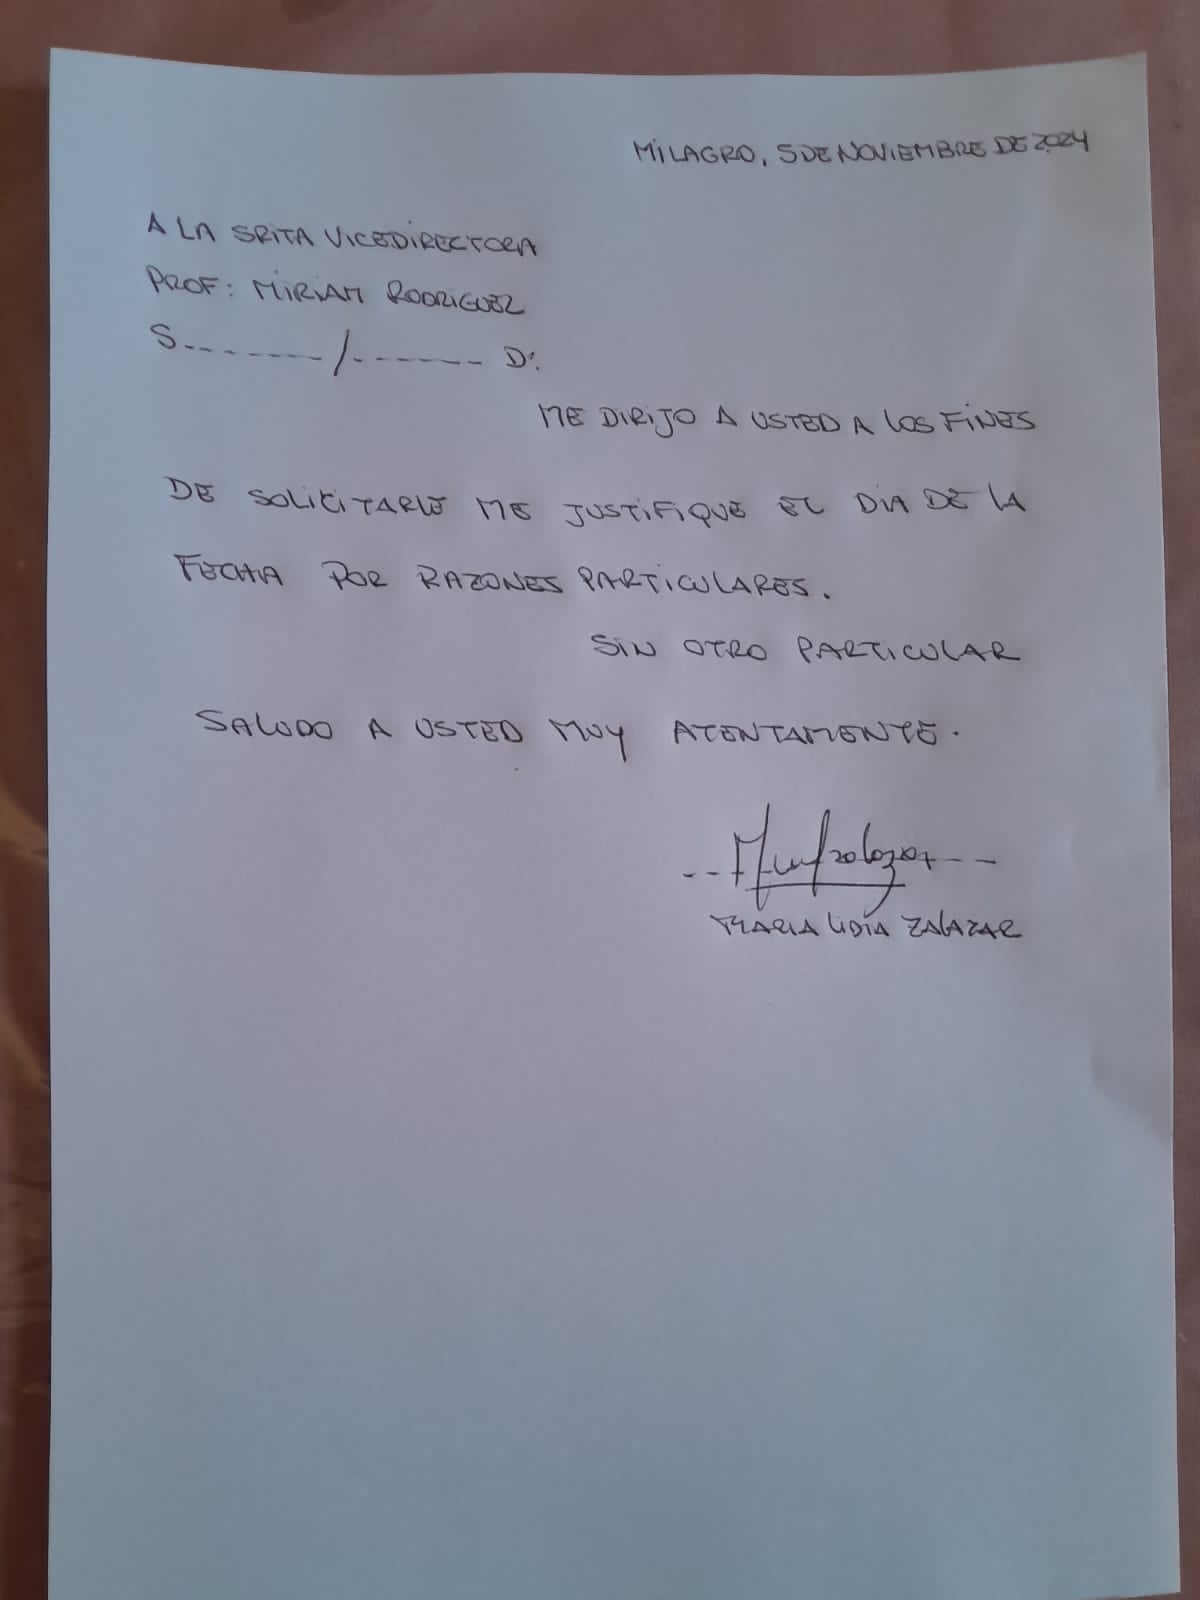 MILAGRO, 5 DE NOVIEMBRE DE 2024
A LA SRITA VICEDIRECTORA
PROF: MIRIAM RODRIGUEZ
S--------/.------- D:
ME DIRIJO A USTED A LOS FINES
DE SOLICITARLE ME JUSTIFIQUE EL DIA DE LA
FECHA POR RAZONES PARTICULARES.
SIN OTRO PARTICULAR
SALUDO A USTED MUY ATENTAMENTE.
MARIA LIDIA ZALAZAR